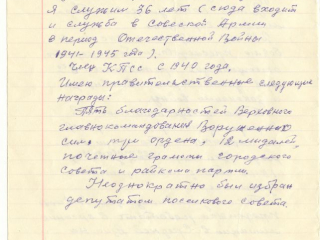 Я служил 36 лет (сюда входит
и служба в Советской Армии
в период Отечественной Войны
1941-1945 г.).
Член КПСС с 1940 года,
Имею правительственные следующие
награды:
Пять благодарностей Верховного
главнокомандования Вооруженных
сил, три ордена, 12 медалей,
почетные грамоты городского
Совета и райкома партии.
Неоднократно был избран
депутатом поселкового совета.